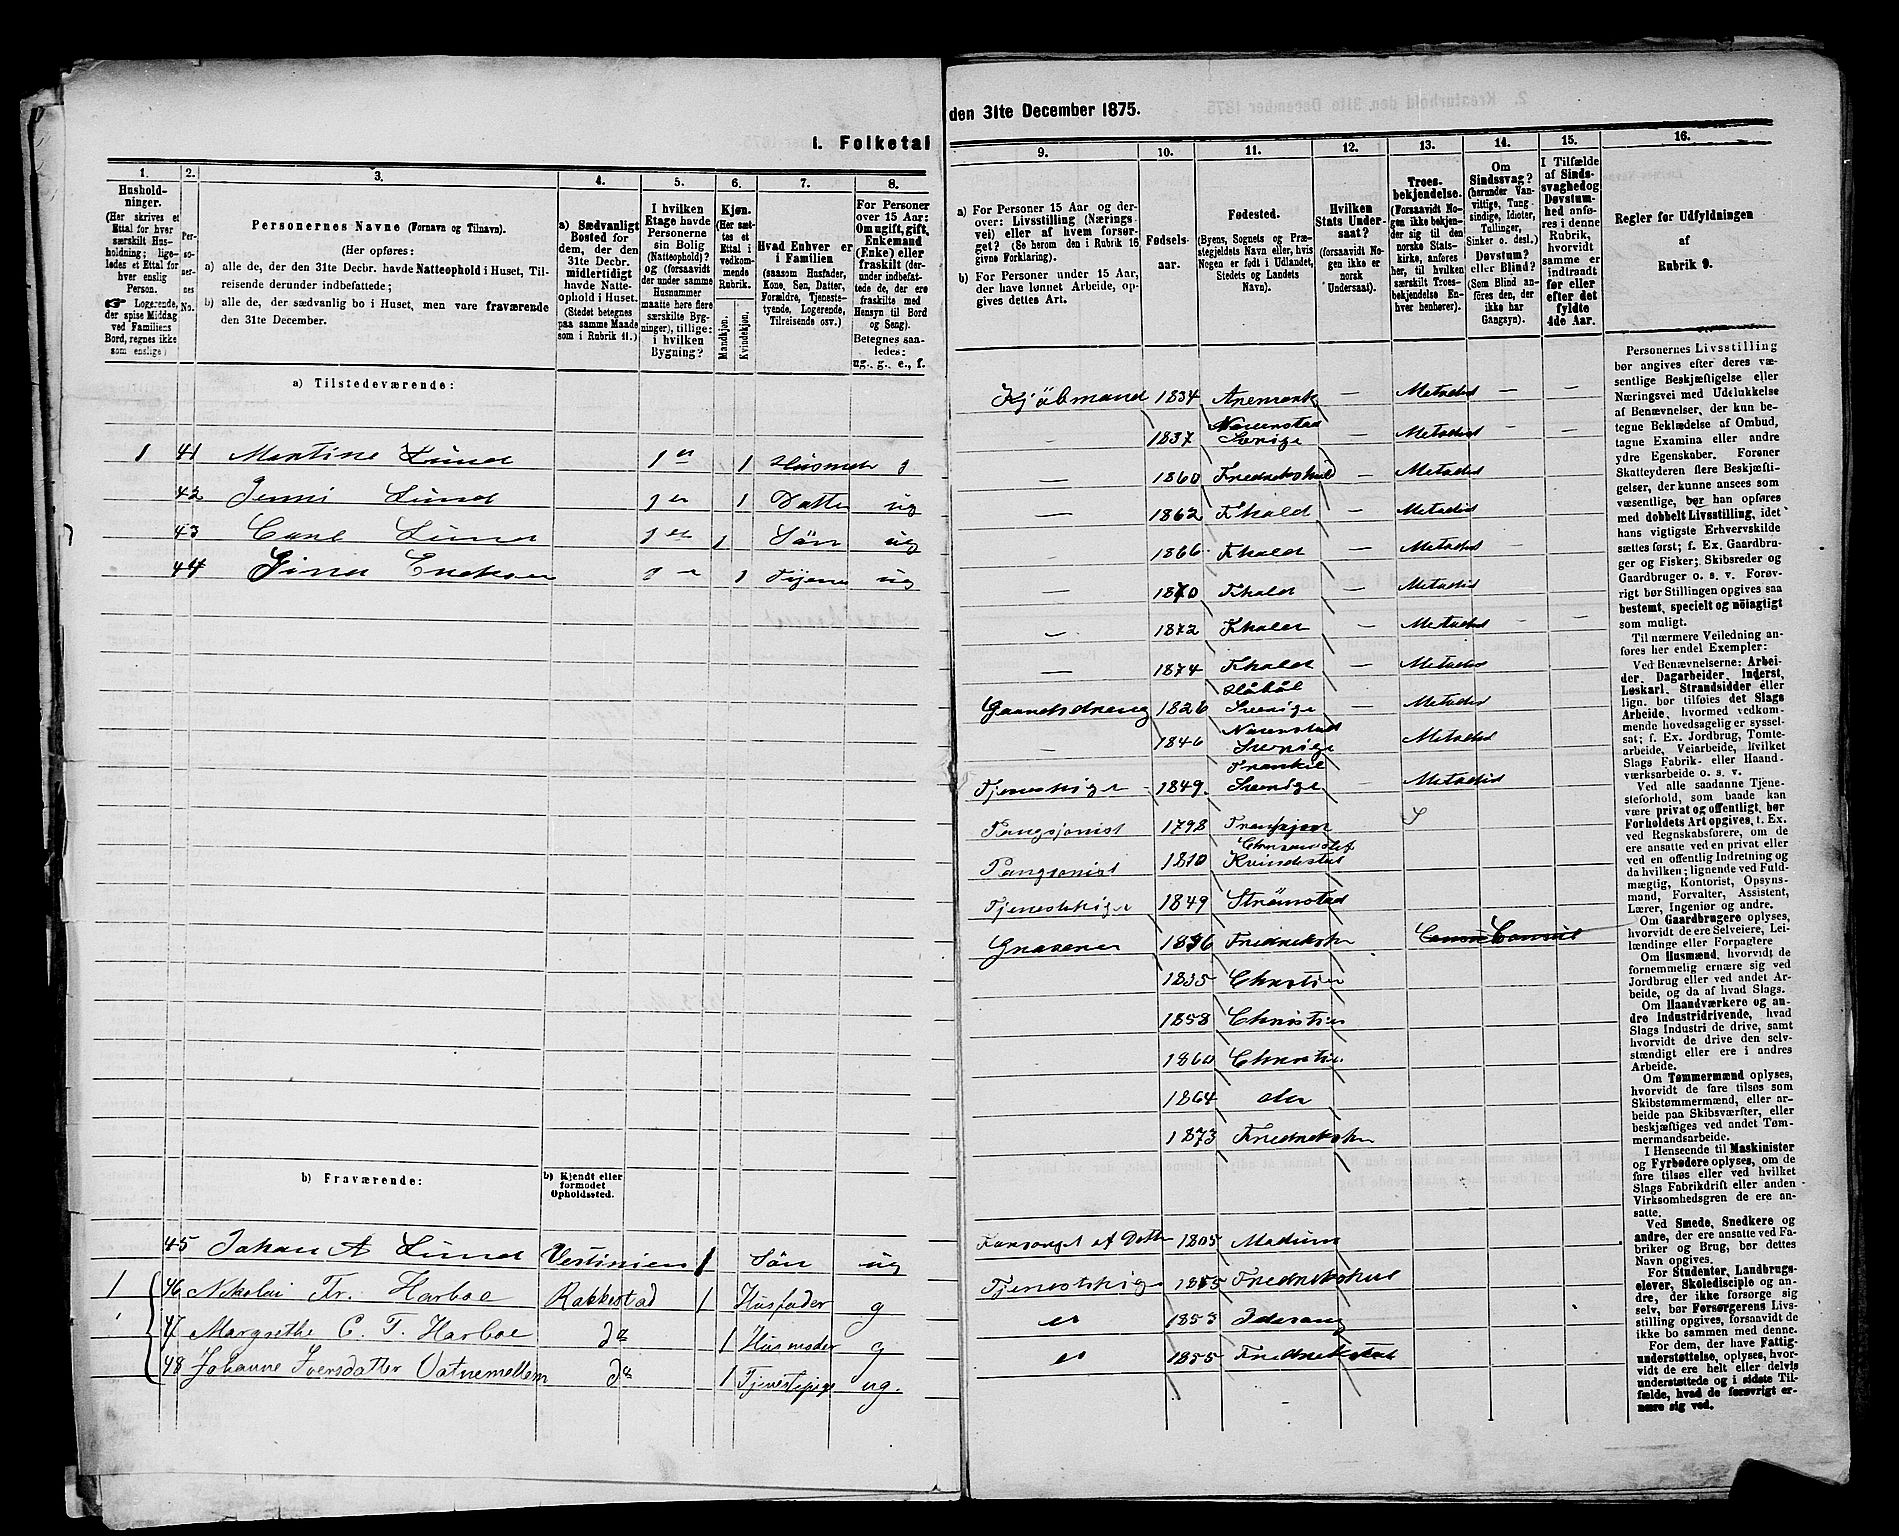 I. Folketal
den 31te December 1875.
1.
Hushold-
ninger.
(Her skrives et
Ettal for hver
særskilt Hus-
holdning; lige-
ledes et Ettal for
hver enslig
Person.
☞ Logerende,
der spise Middag
ved Familiens
Bord, regnes ikke
som enslige)
2.
Per-
so-
ner-
nes
No.
3.
Personernes Navne (Fornavn og Tilnavn).
(Her opføres:
a) alle de, der den 31te Decbr. havde Natteophold i Huset, Til-
reisende derunder indbefattede;
b) alle de, der sædvanlig bo i Huset, men vare fraværende
den 31te December.
4.
a) Sædvanligt
Bosted for
dem, der den
31te Decbr.
midlertidigt
havde Natte-
ophold i Huset.
(Stedet betegnes
paa samme Maade
som i Rubrik 11.)
5.
I hvilken
Etage havde
Personerne
sin Bolig
(Natteophold)?
og (forsaavidt
der under samme
Husnummer
maatte høre flere
særskilte Byg-
ninger), tillige:
i hvilken
Bygning?
6.
Kjøn.
(Her sæt-
tes et
Ettal i
vedkom-
mende
Rubrik.
Mandkjøn.
Kvindekjøn.
7.
Hvad Enhver er
i Familien
(saasom Husfader,
Kone, Søn, Datter,
Forældre, Tjeneste-
tyende, Logerende,
Tilreisende osv.)
8.
For Personer
over 15 Aar:
Om ugift, gift,
Enkemand
(Enke) eller
fraskilt (der-
under indbefat-
tede de, der ere
fraskilte med
Hensyn til Bord
og Seng).
Betegnes saa-
ledes:
ug., g., e., f.
9.
a) For Personer 15 Aar og der-
over: Livsstilling (Nærings-
vei) eller af hvem forsør-
get? (Se herom den i Rubrik 16
givne Forklaring).
b) For Personer under 15 Aar,
der have lønnet Arbeide, op-
gives dettes Art.
10.
Fødsels-
aar.
11.
Fødested.
(Byens, Sognets og Præ-
stegjeldets Navn eller, hvis
Nogen er født i Udlandet,
Stedets og Landets
Navn).
12.
Hvilken
Stats Under-
saat?
(forsaavidt No-
gen ikke er
norsk
Undersaat).
13.
Troes-
bekjendelse.
(Forsaavidt No-
gen ikke beken-
der sig til den
norske Stats-
kirke, anføres
her, til hvilken
særskilt Troes-
bekjendelse En-
hver henhører).
14.
Om
Sindssvag?
(herunder Van-
vittige, Tung-
sindige, Idioter,
Tullinger,
Sinker o. desl.)
Døvstum?
eller Blind?
(Som Blind an-
føres den, der
ikke har
Gangsyn).
15.
I Tilfælde
af Sinds-
svaghed og
Døvstum-
hed anfø-
res i denne
Rubrik,
hvorvidt
samme er
indtraadt
før eller
efter det
fyldte
4de Aar.
16.
Regler for Udfyldningen
af
Rubrik 9.
a) Tilstedeværende:
1 41 Martine Lund 1 1 Husmoder g
42 Jenni Lund 1 Datter ug
43 Carl Lund 1 Søn ug
44 1 Tjene ug
b) Fraværende:
b) Kjendt eller
formodet
Opholdssted.
45 Johan A Lund 1 Søn ug
1 46 Nikolai Fr. Harboe Rakkestad 1 Husfader g
47 Margrethe C. T. Harboe do 1 Husmoder g
48 Johanne Iversdatter Vatnemellem do 1 Tjenestepige ug.
Kjøbmand 1834 Aremark — Metodist — —
— 1837 Naverstad Sverige — Metodist — —
— 1860 Fredrikshald — Metodist
— 1862 Fhald — Metodist
— 1866 Fhald — Metodist
1870 Fhald — Metodist
— 1872 Fhald — Metodist — —
— 1874 Fhald — Metodist
Gaardsdreng 1826 Sverige — Metodist
— 1846 Naverstad Sverige Metodist
Tjenestpige 1849 Sverige Metodist
Pangsjonist 1798
Pangsjonist 1810
Tjenestpige 1849 Strømstad
1836 Fredriksh
1835 Christia
1858 Christia
1860 Christia
1864
1873 Fredriksh
Forsørget af Datter 1805
Tjenestpige 1855 Fredrikshald
1853
1855 Fredrikshald
Personernes Livsstilling
bør angives efter deres væ-
sentlige Beskjæftigelse eller
Næringsvei med Udelukkelse
af Benævnelser, der kun be-
tegne Beklædelse af Ombud,
tagne Examina eller andre
ydre Egenskaber. Forener
Skatteyderen flere Beskjæfti-
gelser, der kunne ansees som
væsentlige, bør han opføres
med dobbelt Livsstilling, idet
hans vigtigste Erhvervskilde
sættes først; f. Ex. Gaardbru-
ger og Fisker; Skibsreder og
Gaardbruger o. s. v. Forøv-
rigt bør Stillingen opgives saa
bestemt, specielt og nøiagtigt
som muligt.
Til nærmere Veiledning an-
føres her endel Exempler:
Ved Benævnelserne: Arbei-
der, Dagarbeider, Inderst,
Løskarl, Strandsidder eller
lign. bør tilføies det Slags
Arbeide, hvormed vedkom-
mende hovedsagelig er syssel-
sat; f. Ex. Jordbrug, Tomte-
arbeide, Veiarbeide, hvilket
Slags Fabrik- eller Haand-
værksarbeide o. s. v.
Ved alle saadanne Tjene-
steforhold, som baade kan
være privat og offentligt, bør
Forholdets Art opgives, t. Ex.
ved Regnskabsførere, om de
ere ansatte ved en privat eller
ved en offentlig Indretning og
da hvilken; lignende ved Fuld-
mægtig, Kontorist, Opsyns-
mand, Forvalter, Assistent,
Lærer, Ingeniør og andre.
Om Gaardbrugere oplyses,
hvorvidt de ere Selveiere, Lei-
lændinge eller Forpagtere
Om Husmænd, hvorvidt de
fornemmelig ernære sig ved
Jordbrug eller ved andet Ar-
beide, og da af hvad Slags.
Om Haandværkere og an-
dre Industridrivende, hvad
Slags Industri de drive, samt
hvorvidt de drive den selv-
stændigt eller ere i andres
Arbeide.
Om Tømmermænd oplyses,
hvorvidt de fare tilsøs som
Skibstømmermænd, eller ar-
beide paa Skibsværfter, eller
beskjæftiges ved andet Tøm-
mermandsarbeide.
I Henseende til Maskinister
og Fyrbødere oplyses, om de
fare tilsøs eller ved hvilket
Slags Fabrikdrift eller anden
Virksomhedsgren de ere an-
satte.
Ved Smede, Snedkere og
andre, der ere ansatte ved Fa-
briker og Brug, bør dettes
Navn opgives.
For Studenter, Landbrugs-
elever, Skoledisciple og an-
dre, der ikke forsørge sig
selv, bør Forsørgerens Livs-
stilling opgives, forsaavidt de
ikke bo sammen med denne.
For dem, der have Fattig-
understøttelse, oplyses, hvor-
vidt de ere helt eller delvis
understøttede og i sidste Til-
fælde, hvad de forøvrigt er-
nære sig ved.